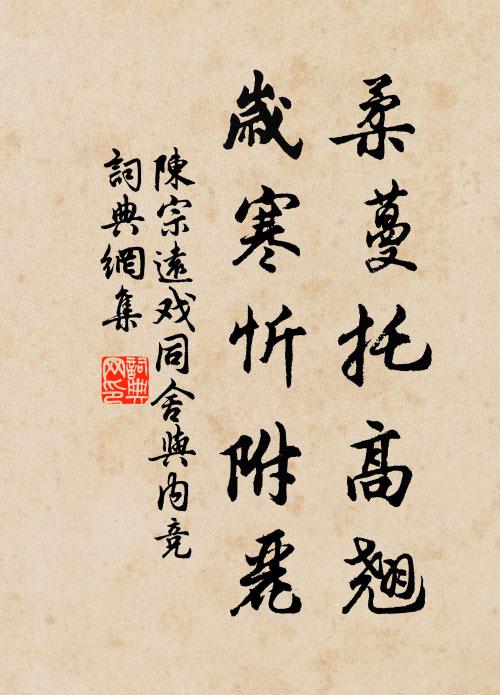 柔蔓托高翹
歲寒忻附麗
陳宗遠戏同舍與内竞
詞典網集
詞典网印